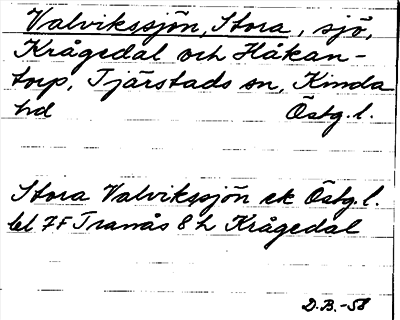 Valvikssjön, Stora, sjö,
Krågedal och Håkan-
torp, Tjärstads sn, Kinda
hd Östg. l.
Stora Valvikssjön ek Östg. l.
bl 7F Tranås 8 h Krågedal
D.B.-58